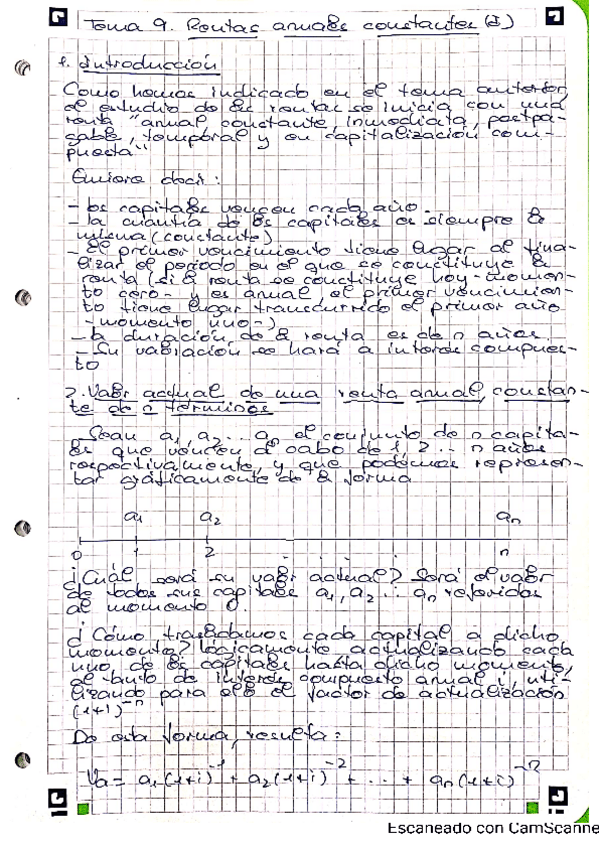 Tema 9. Rentas anuales constantes (I)
1. Introducción
Como hemos indicado en el tema anterior
el estudio de las rentas se inicia con una
renta "anual, constante, inmediata, pospa-
gable, temporal y en capitalización com-
puesta"
Quiere decir:
- los capitales vencen cada año.
- la cuantía de los capitales es siempre la
misma (constante)
- El primer vencimiento tiene lugar al fina-
lizar el periodo en el que se constituye la
renta (si la renta se constituye hoy - momen-
to cero - y es anual, el primer vencimien-
to tiene lugar transcurrido el primer año
- momento uno -)
- la duración de la renta es de n años
- Su valoración se hará a interés compues-
to
2. Valor actual de una renta anual, constan-
te de n términos
Sean a1, a2 ... an el conjunto de n capita-
les que vencen al cabo de 1, 2 ... n años
respectivamente, y que podemos represen-
tar gráficamente de la forma
a1 a2 an
0 1 2 . . . n
¿Cuál será su valor actual? Será el valor
de todos sus capitales a1, a2 ... an referidos
al momento 0.
¿Cómo trasladamos cada capital a dicho
momento? Lógicamente actualizando cada
uno de los capitales hasta dicho momento,
al tanto de interés compuesto anual i, uti-
lizando para ello el factor de actualización
(1+i)^-n
De esta forma, resulta:
Va = a1(1+i)^-1 + a2(1+i)^-2 + ... + an(1+i)^-n
Escaneado con CamScanne